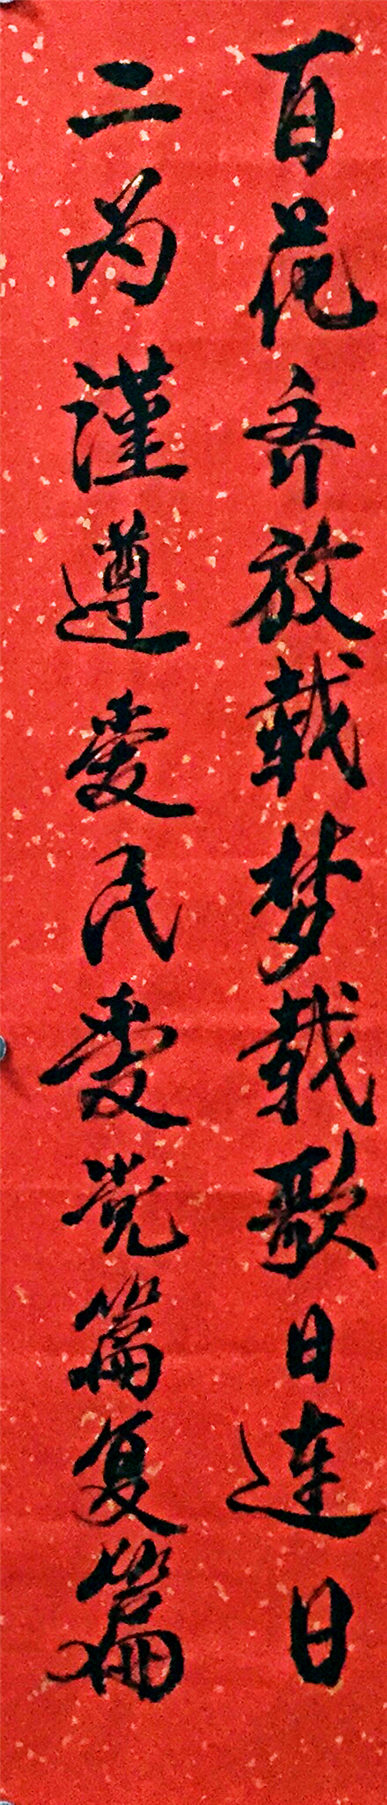 百花齐放载梦载歌日连日
二为谨遵爱民爱党篇复篇